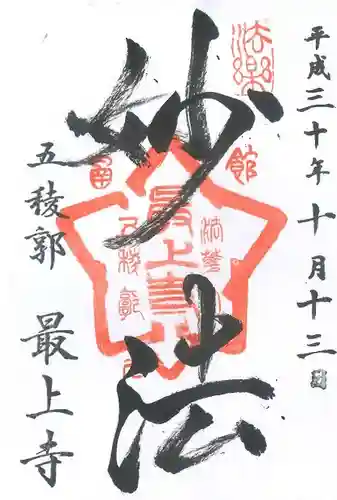 平成三十年十月十三日
法樂
妙法
函館
最上寺
法華
五稜郭
五稜郭 最上寺